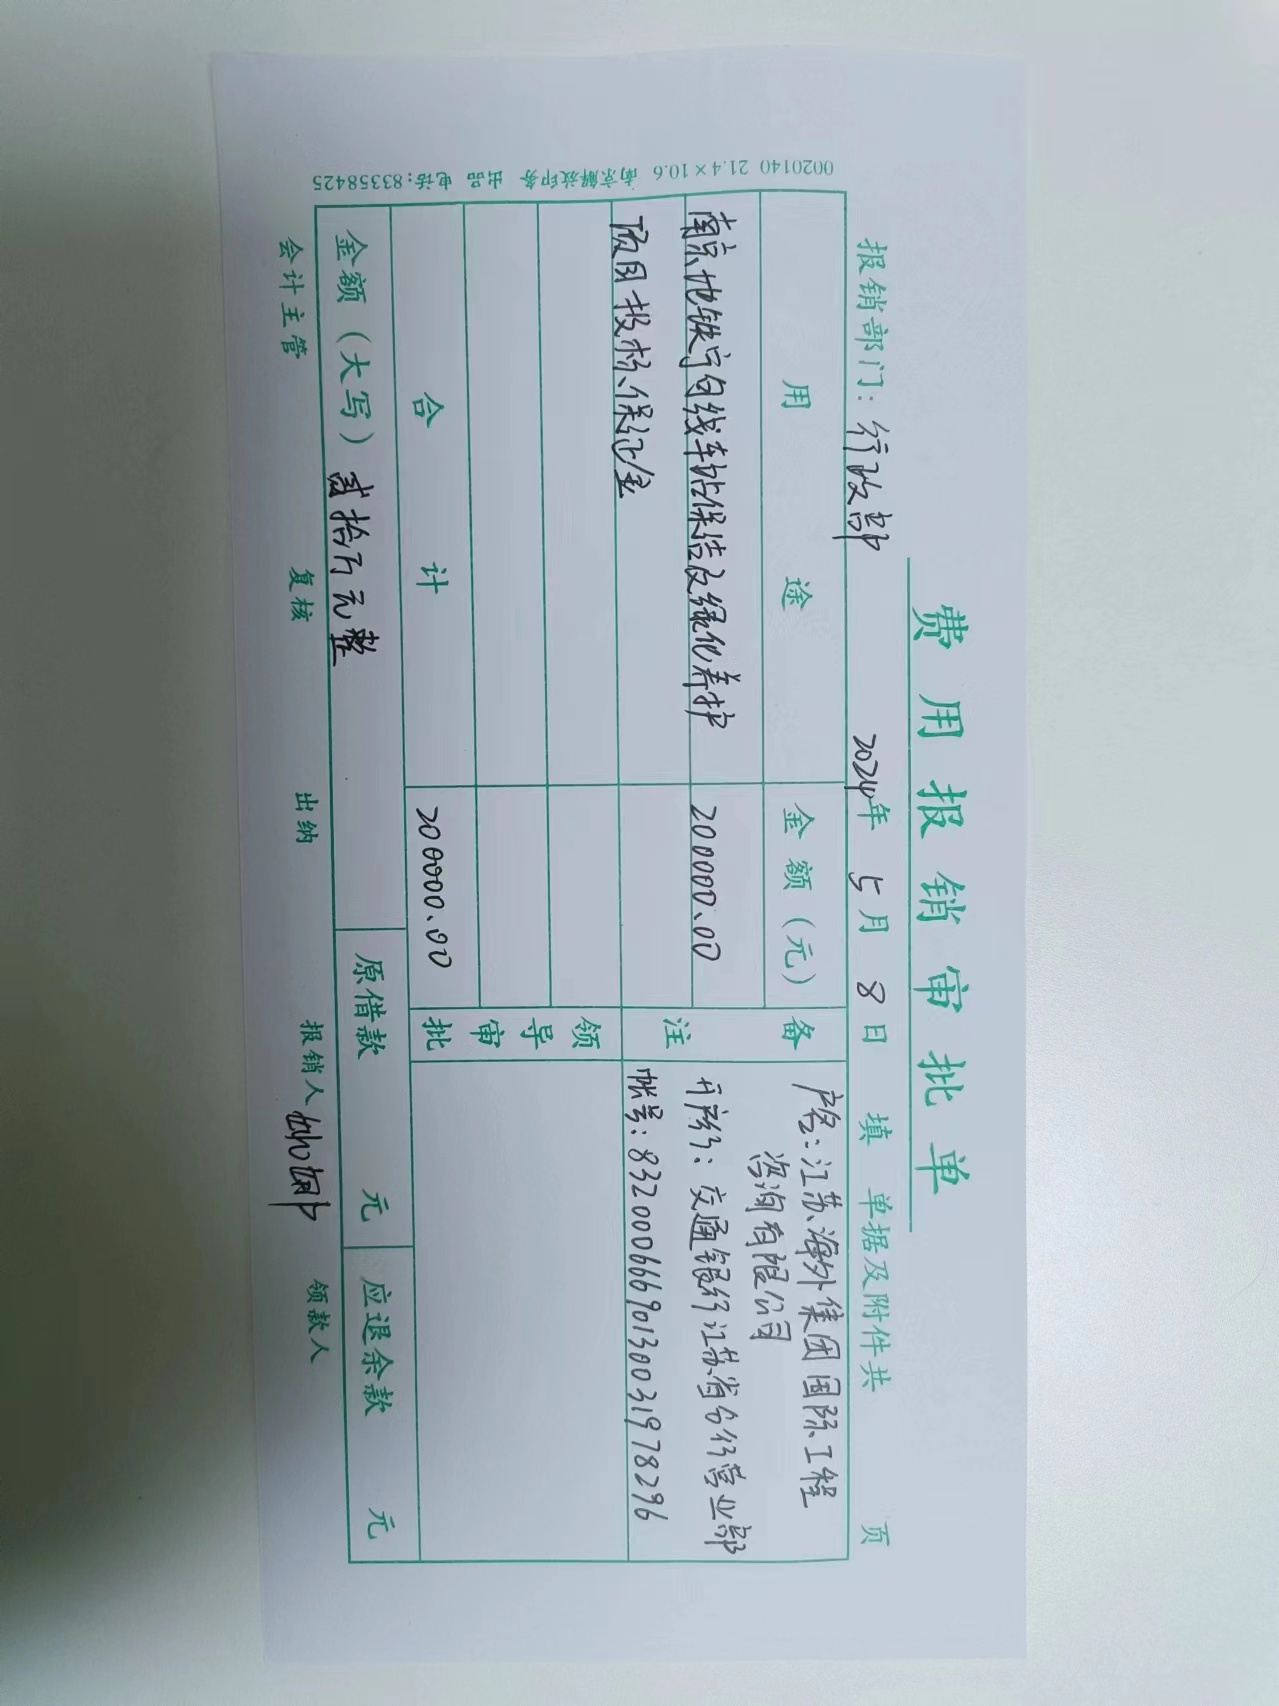 费用报销审批单
报销部门：行政部 2024年 5月 8日 填 单据及附件共 页
用途 金额（元） 备注
南京地铁宁句线车站保洁及绿化养护 200000.00
项目投标保证金
户名：江苏海外集团国际工程
咨询有限公司
开户行：交通银行江苏省分行营业部
帐号：832000666901300319782​96
领导审批
合计 200000.00
金额（大写）贰拾万元整 原借款 元 应退余款 元
会计主管 复核 出纳 报销人 领款人
0020140 21.4×10.6 南京解放印务 出品 电话:83358425